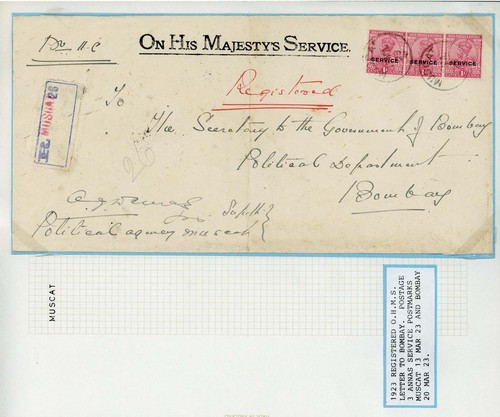 ON HIS MAJESTY'S SERVICE.
SERVICE SERVICE SERVICE
Registered
To
The Secretary to the Government of Bombay
Political Department
Bombay
26
Political agency muscat
MUSCAT
1923 REGISTERED O.H.M.S.
LETTER TO BOMBAY. POSTAGE
3 ANNAS SERVICE POSTMARKS
MUSCAT 13 MAR 23 AND BOMBAY
20 MAR 23.